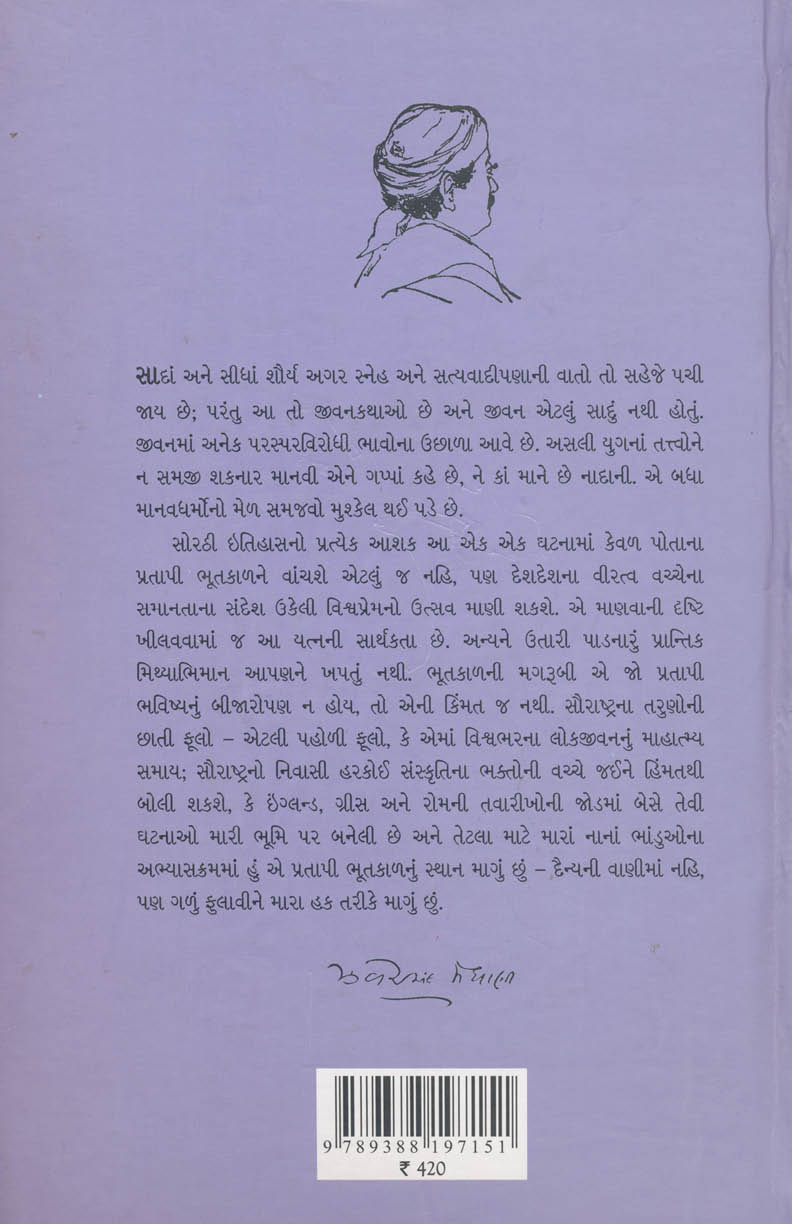 સાદાં અને સીધાં શૌર્ય અગર સ્નેહ અને સત્યવાદીપણાની વાતો તો સહેજે પચી
જાય છે; પરંતુ આ તો જીવનકથાઓ છે અને જીવન એટલું સાદું નથી હોતું.
જીવનમાં અનેક પરસ્પરવિરોધી ભાવોના ઉછાળા આવે છે. અસલી યુગનાં તત્ત્વોને
ન સમજી શકનાર માનવી એને ગપ્પાં કહે છે, ને કાં માને છે નાદાની. એ બધા
માનવધર્મોનો મેળ સમજવો મુશ્કેલ થઈ પડે છે.
સોરઠી ઇતિહાસનો પ્રત્યેક આશક આ એક એક ઘટનામાં કેવળ પોતાના
પ્રતાપી ભૂતકાળને વાંચશે એટલું જ નહિ, પણ દેશદેશના વીરત્વ વચ્ચેના
સમાનતાના સંદેશ ઉકેલી વિશ્વપ્રેમનો ઉત્સવ માણી શકશે. એ માણવાની દૃષ્ટિ
ખીલવવામાં જ આ યત્નની સાર્થકતા છે. અન્યને ઉતારી પાડનારું પ્રાન્તિક
મિથ્યાભિમાન આપણને ખપતું નથી. ભૂતકાળની મગરૂબી એ જો પ્રતાપી
ભવિષ્યનું બીજારોપણ ન હોય, તો એની કિંમત જ નથી. સૌરાષ્ટ્રના તરુણોની
છાતી ફૂલો – એટલી પહોળી ફૂલો, કે એમાં વિશ્વભરના લોકજીવનનું માહાત્મ્ય
સમાય; સૌરાષ્ટ્રનો નિવાસી હરકોઈ સંસ્કૃતિના ભક્તોની વચ્ચે જઈને હિંમતથી
બોલી શકશે, કે ઇંગ્લન્ડ, ગ્રીસ અને રોમની તવારીખોની જોડમાં બેસે તેવી
ઘટનાઓ મારી ભૂમિ પર બનેલી છે અને તેટલા માટે મારાં નાનાં ભાંડુઓના
અભ્યાસક્રમમાં હું એ પ્રતાપી ભૂતકાળનું સ્થાન માગું છું – દૈન્યની વાણીમાં નહિ,
પણ ગળું ફુલાવીને મારા હક તરીકે માગું છું.
ઝવેરચંદ મેઘાણી
9 789388 197151
₹ 420